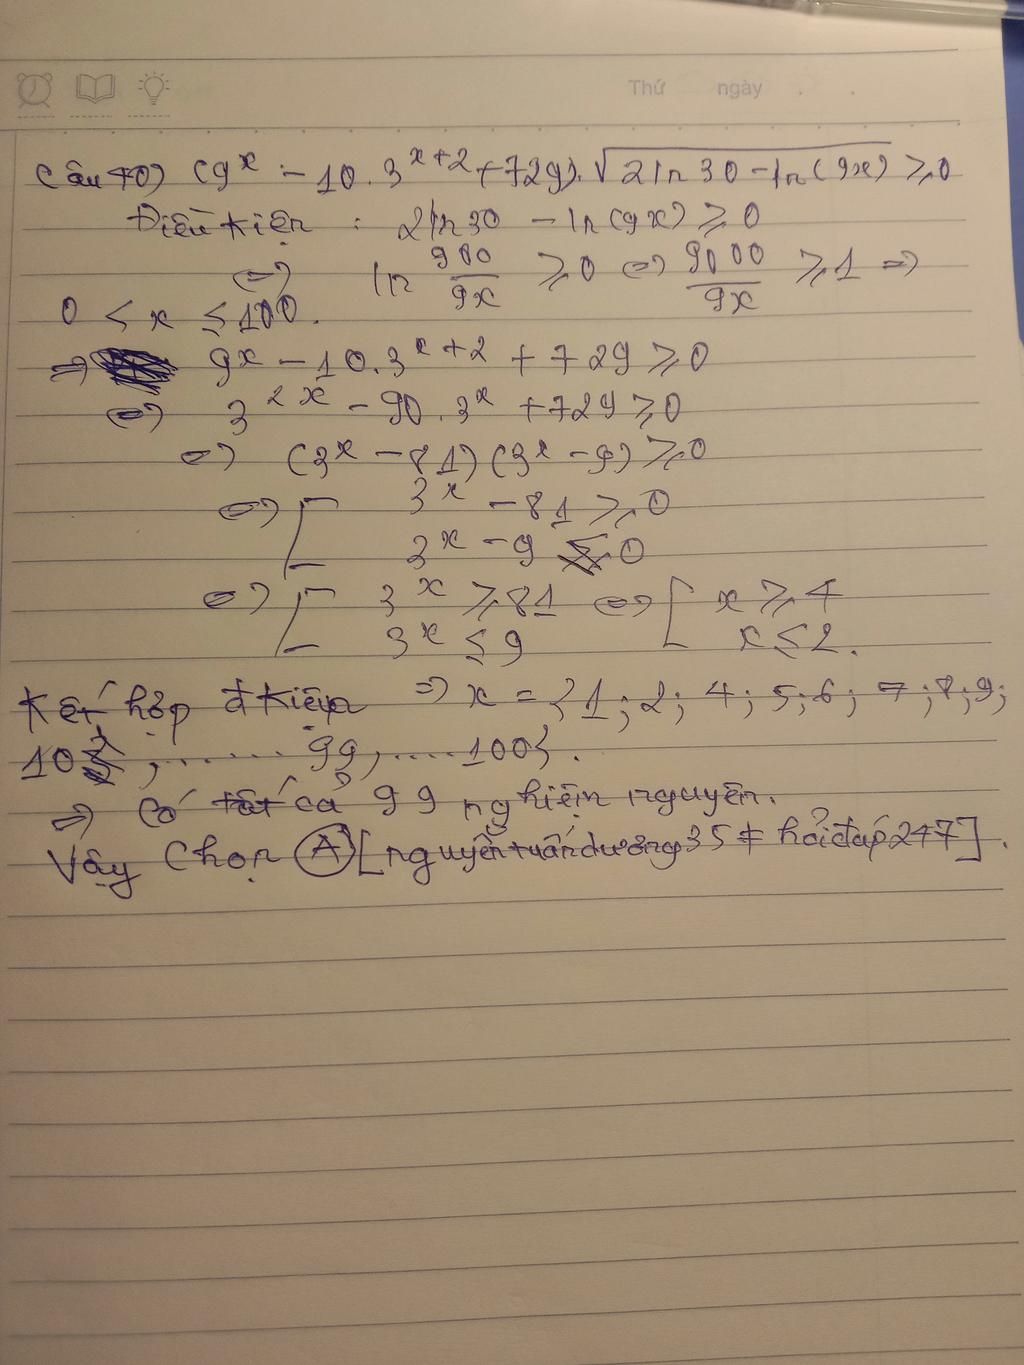 Thứ ngày . .
Câu 40) (9^x - 10.3^{x+2} + 729).√(2ln30 - ln(9x)) ≥ 0
Điều kiện : 2ln30 - ln(9x) ≥ 0
⇔ ln 900/9x ≥ 0 ⇔ 9000/9x ≥ 1 ⇒
0 < x ≤ 100.
⇒ 9^x - 10.3^{x+2} + 729 ≥ 0
⇔ 3^{2x} - 90.3^x + 729 ≥ 0
⇔ (3^x - 81)(3^x - 9) ≥ 0
⇔ [ 3^x - 81 ≥ 0
3^x - 9 ≤ 0
⇔ [ 3^x ≥ 81 ⇔ [ x ≥ 4
3^x ≤ 9 x ≤ 2.
Kết hợp đ kiện ⇒ x = {1; 2; 4; 5; 6; 7; 8; 9;
10; ...... 99, .... 100}.
⇒ Có tất cả 99 nghiệm nguyên.
Vậy Chọn (A) [nguyễn tuấn dương 35 # hỏi đáp 247].